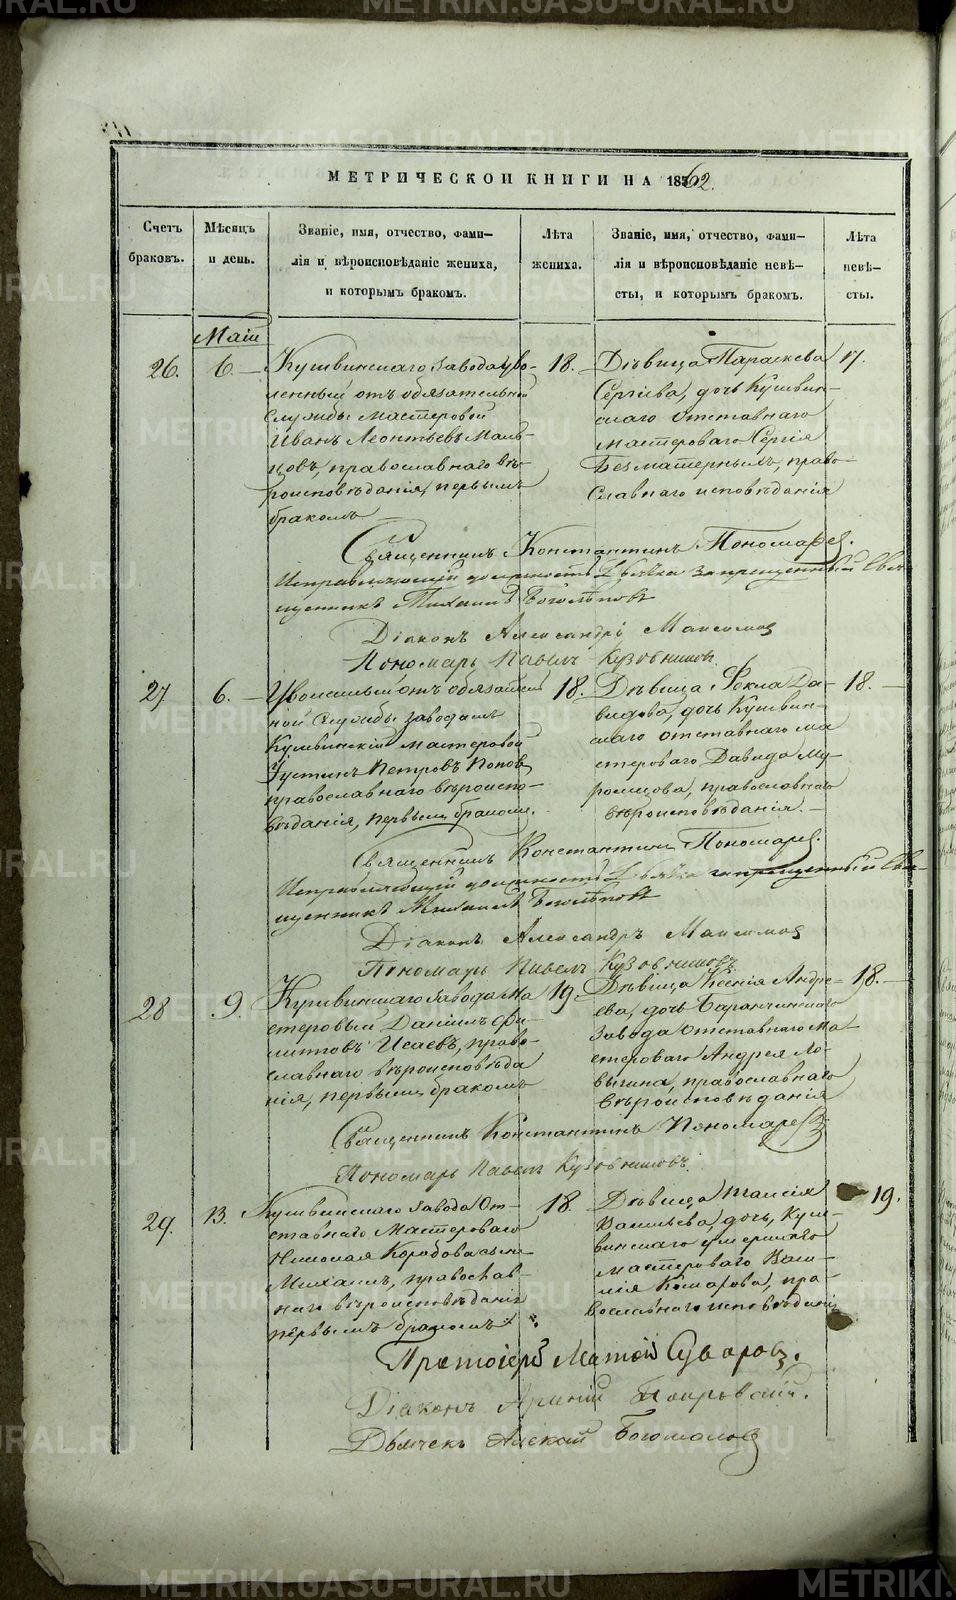 МЕТРИЧЕСКОЙ КНИГИ НА 1862.
Счетъ браковъ.
Мѣсяцъ и день.
Званіе, имя, отчество, фами-
лія и вѣроисповѣданіе жениха,
и которымъ бракомъ.
Лѣта жениха.
Званіе, имя, отчество, фами-
лія и вѣроисповѣданіе невѣ-
сты, и которымъ бракомъ.
Лѣта невѣ-
сты.
Маій
26.
6.
Кушвинскаго завода уво-
ленный отъ обязательной
службы мастеровой
Иванъ Леонтьевъ Маль-
цовъ, православнаго вѣ-
роисповѣданія, первымъ
бракомъ
18.
Дѣвица Параскева
Сергіева, дочь Кушвин-
скаго отставнаго
мастероваго Сергія
Безматерныхъ, право-
славнаго исповѣданія
17.
Священникъ Константинъ Пономаревъ.
Исправляющій должность Дьячка запрещенный Свя-
щенникъ Михаилъ Боголѣповъ
Діаконъ Александръ Максимовъ
Пономарь Павелъ Кузовниковъ.
27
6.
Уволенный отъ обязатель
ной службы заводамъ
Кушвинскій мастеровой
Іустинъ Петровъ Поповъ
православнаго вѣроиспо-
вѣданія, первымъ бракомъ.
18.
Дѣвица Фекла Да-
видова, дочь Кушвин-
скаго отставнаго ма
стероваго Давида Му-
ромцова, православнаго
вѣроисповѣданія.
18.
Священникъ Константинъ Пономаревъ.
Исправляющій должность Дьячка запрещенный Свя-
щенникъ Михаилъ Боголѣповъ
Діаконъ Александръ Максимовъ
Пономарь Павелъ Кузовниковъ
28
9.
Кушвинскаго завода ма
стеровый Даніилъ Фи-
липповъ Исаевъ, право-
славнаго вѣроисповѣда
нія, первымъ бракомъ
19.
Дѣвица Ксенія Андре-
ева, дочь Баранчинскаго
завода отставнаго ма-
стероваго Андрея Ло-
выгина, православнаго
вѣроисповѣданія
18.
Священникъ Константинъ Пономаревъ
Пономарь Павелъ Кузовниковъ.
29.
13.
Кушвинскаго завода от-
ставнаго мастероваго
Николая Коробова сынъ
Михаилъ, православ-
наго вѣроисповѣданія
первымъ бракомъ
18.
Дѣвица Таисія
Васильева, дочь, Куш-
винскаго умершаго
мастероваго Васи-
лія Комарова, пра-
вославнаго исповѣданія
19.
Протоіерей Матѳій Суворовъ.
Діаконъ Арсеній Покровскій.
Дьячекъ Алексій Богомоловъ